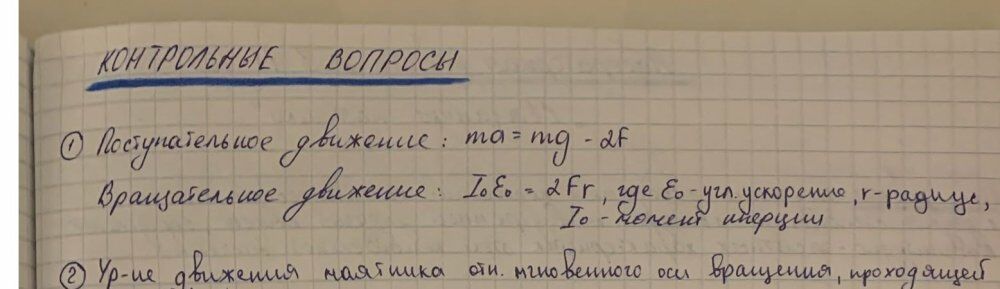 КОНТРОЛЬНЫЕ ВОПРОСЫ
① Поступательное движение: ma = mg - 2F
Вращательное движение: I₀ε₀ = 2Fr, где ε₀-угл. ускорение, r-радиус,
I₀ - момент инерции
② Ур-ие движения маятника отн. мгновенного оси вращения, проходящей